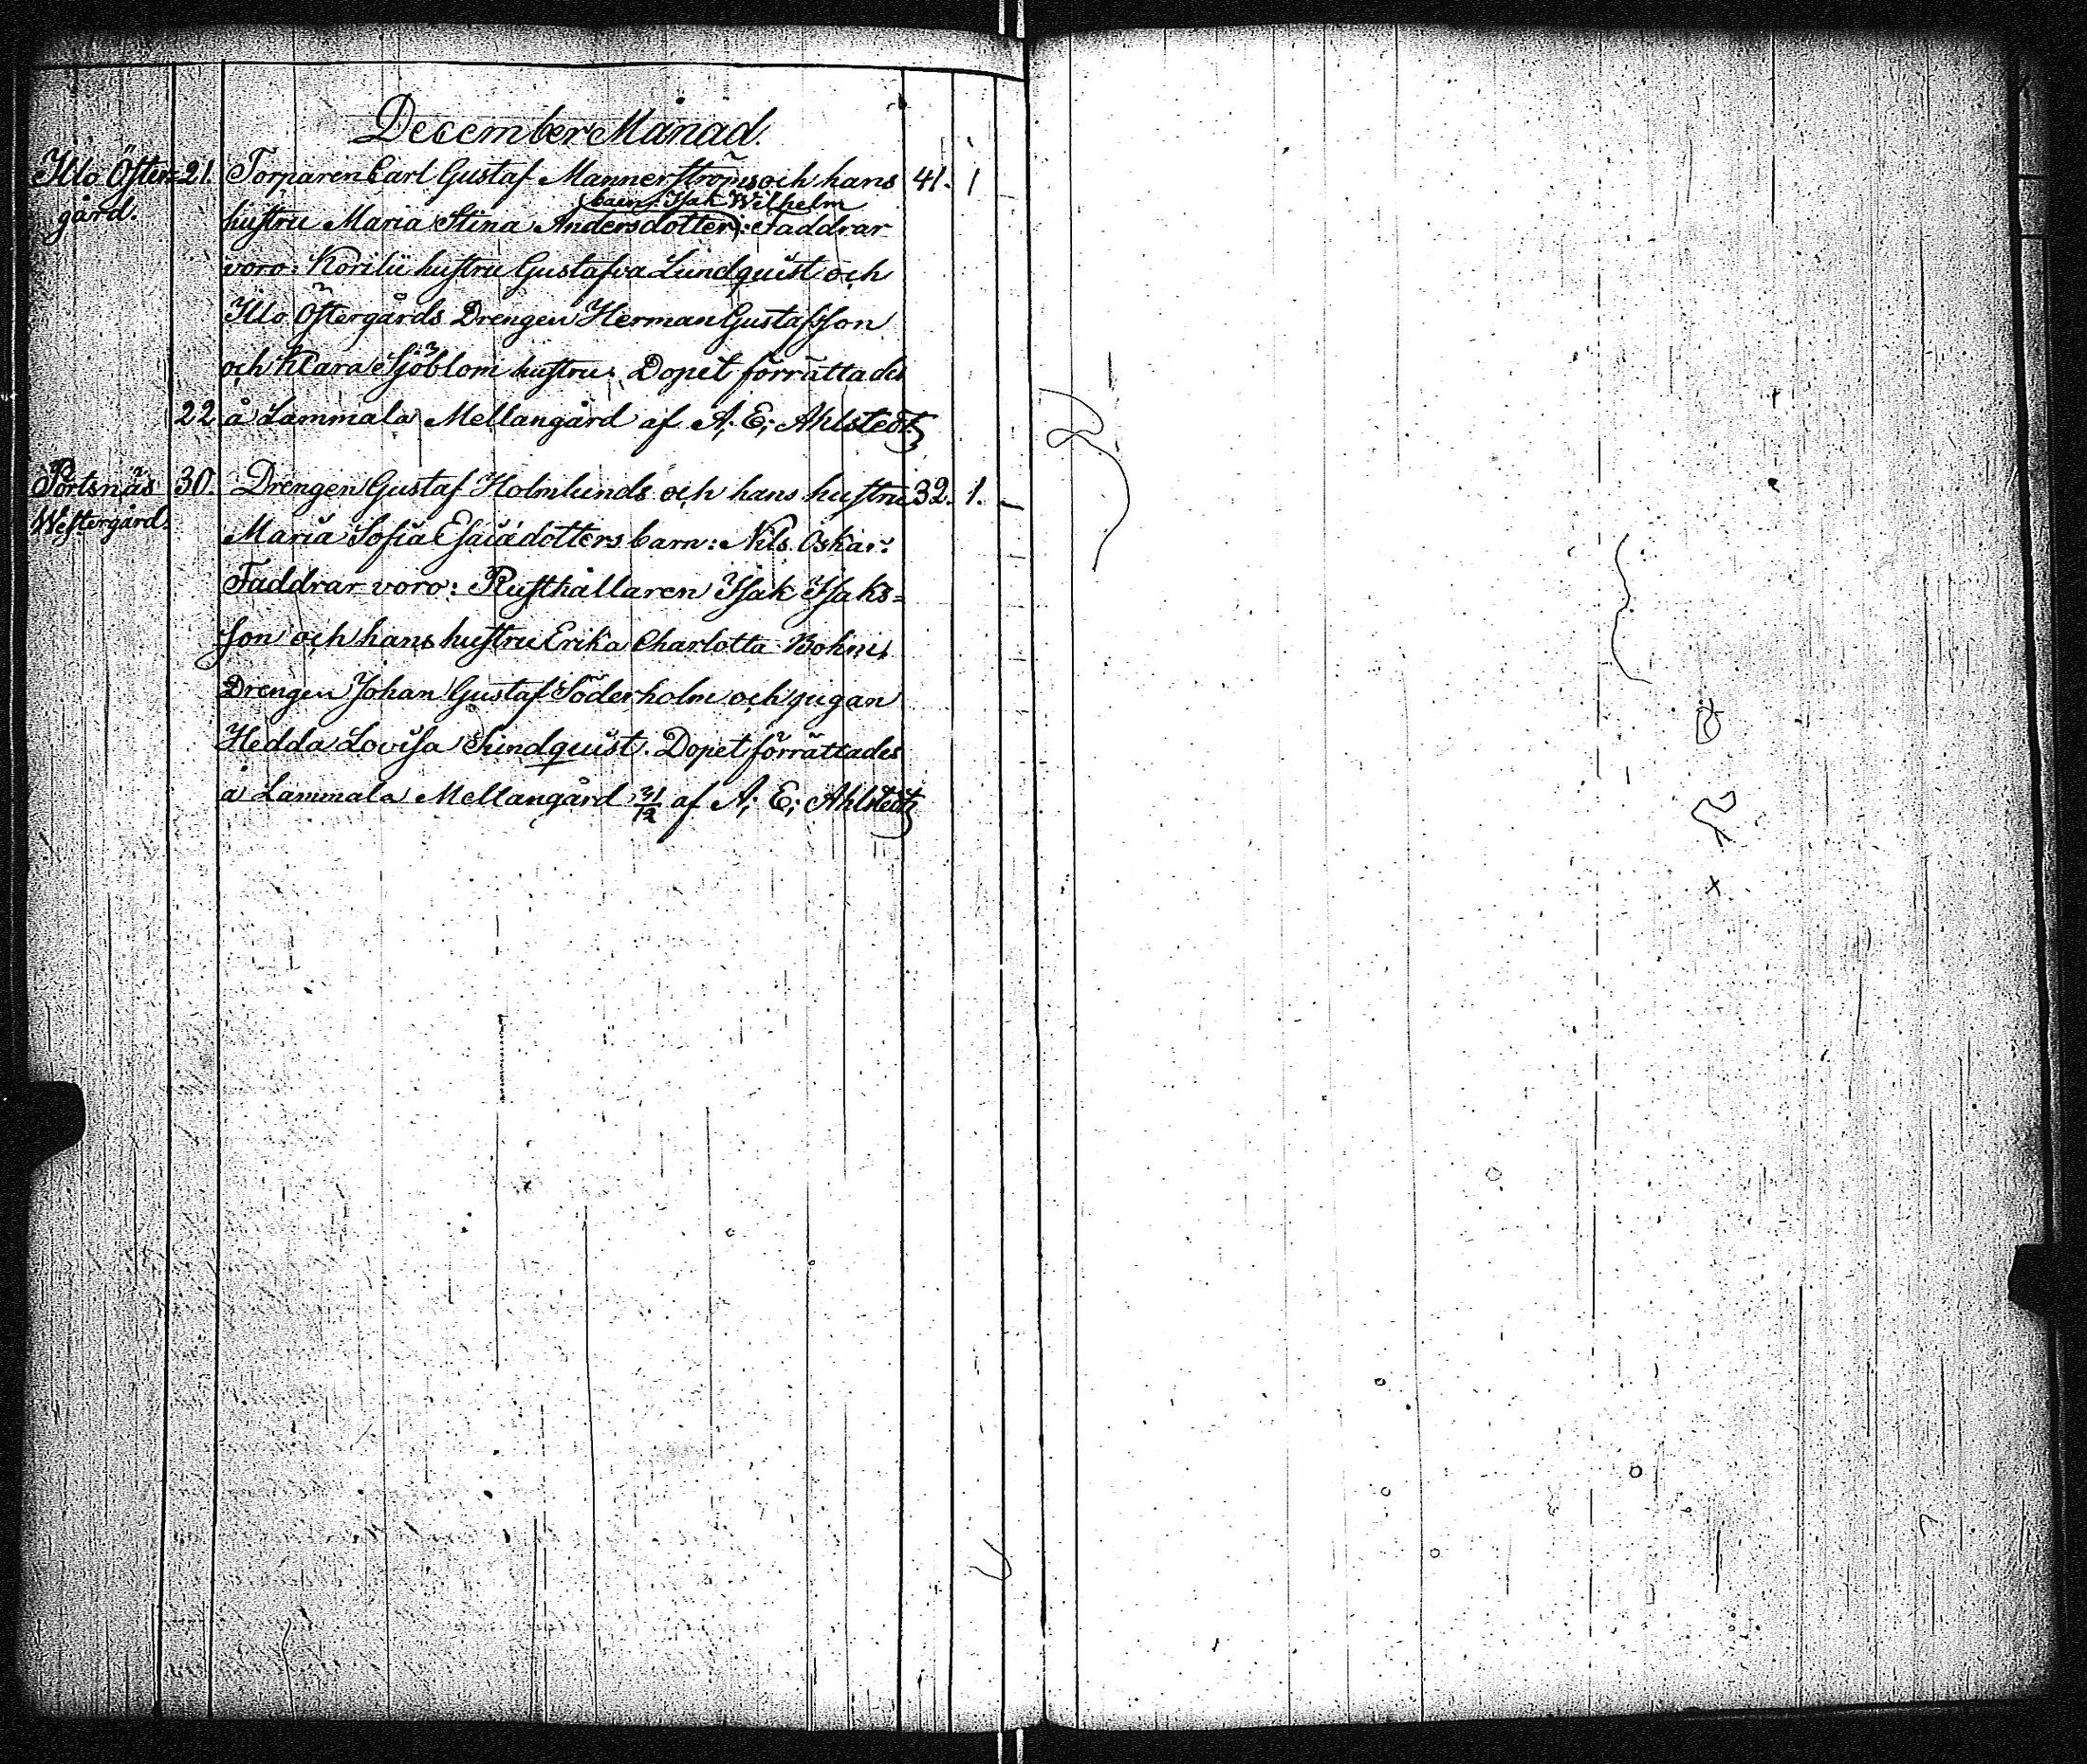 December Månad.
Illo Öster= 21. Torparen Carl Gustaf Mannerströms och hans 41. 1
barn: Isak Wilhelm
gård. hustru Maria Stina Andersdotter: Faddrar
voro: Korilii hustru Gustafva Lundquist och
Illo Östergårds Drengen Herman Gustafsson
och Klara Sjöblom hustru. Dopet förrättades
22 å Lammala Mellangård af A; E; Ahlstedt
Pörtsnäs 30. Drengen Gustaf Holmlunds och hans hustru 32. 1.
Westergård. Maria Sofia Esaiædotters barn: Nils Oskar.
Faddrar voro: Rusthållaren Isak Isaks=
son och hans hustru Erika Charlotta Bohm,
Drengen Johan Gustaf Söderholm och pigan
Hedda Lovisa Lindquist. Dopet förrättades
å Lammala Mellangård 31/12 af A; E; Ahlstedt